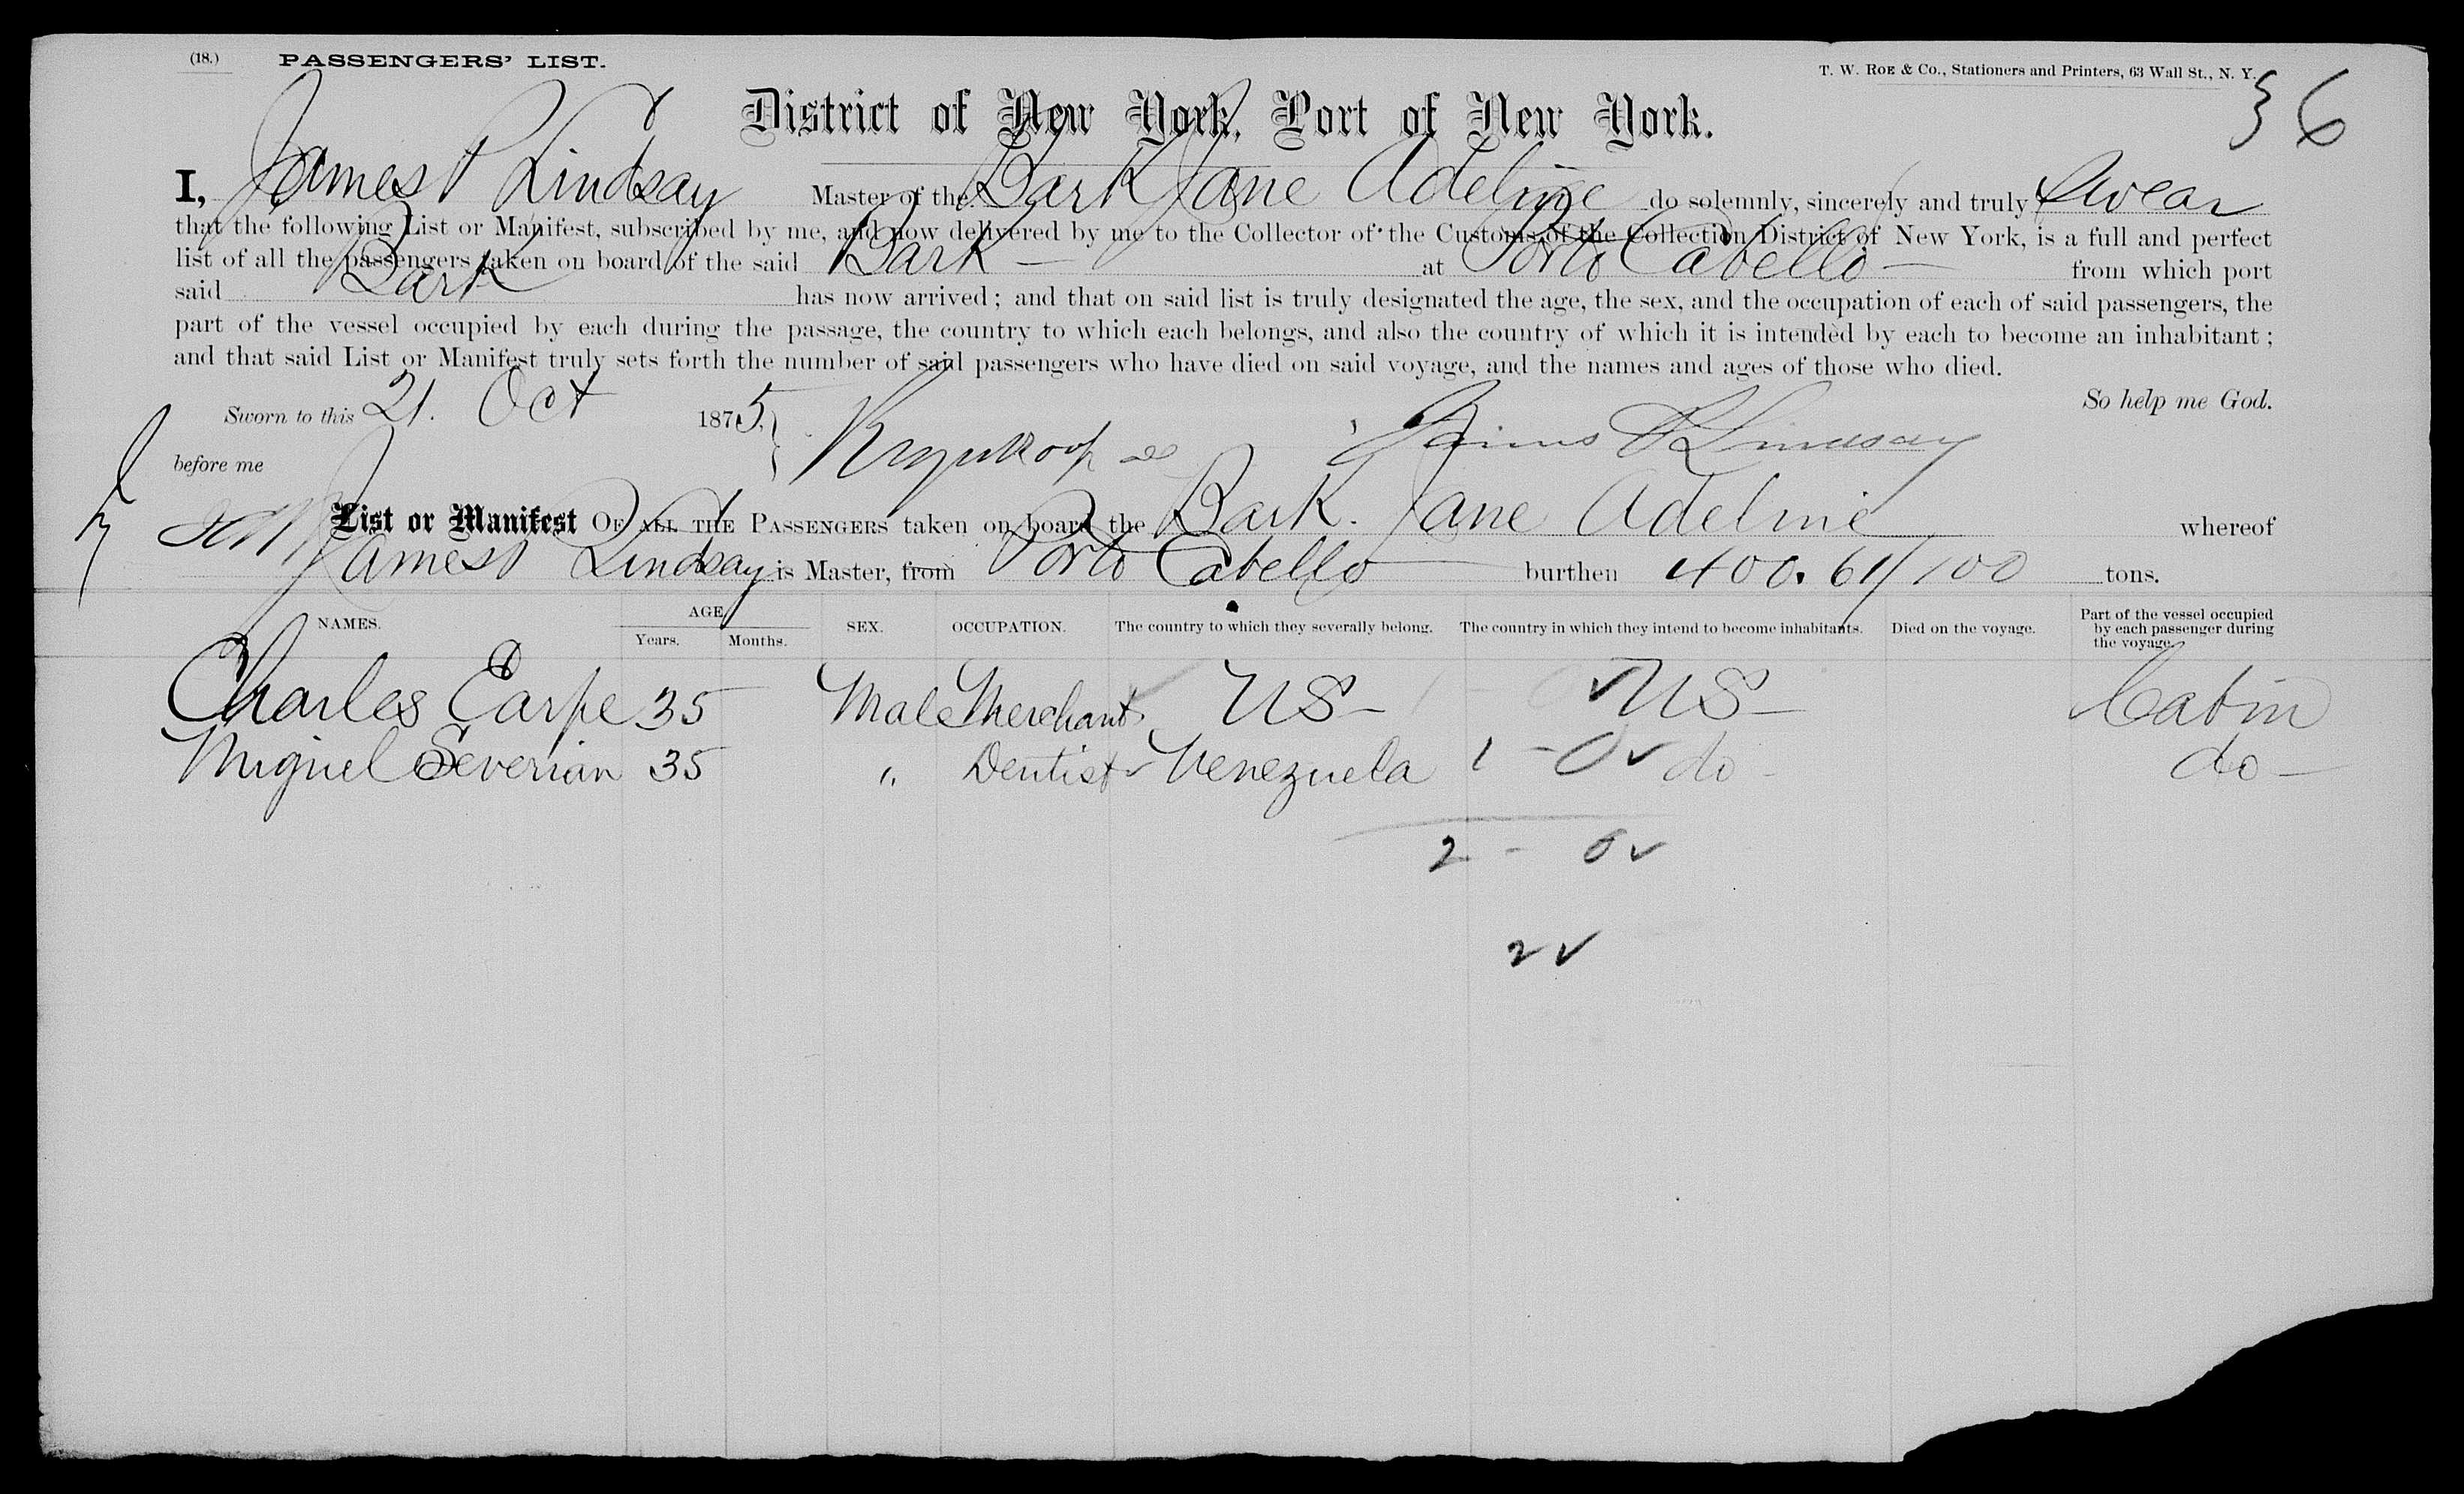 (18.) PASSENGERS' LIST.
T. W. ROE & Co., Stationers and Printers, 63 Wall St., N. Y.
36
District of New York, Port of New York.
I, James P Lindsay Master of the Bark Jane Adeline do solemnly, sincerely and truly Swear
that the following List or Manifest, subscribed by me, and now delivered by me to the Collector of the Customs of the Collection District of New York, is a full and perfect
list of all the passengers taken on board of the said Bark — at Porto Cabello — from which port
said Bark has now arrived; and that on said list is truly designated the age, the sex, and the occupation of each of said passengers, the
part of the vessel occupied by each during the passage, the country to which each belongs, and also the country of which it is intended by each to become an inhabitant;
and that said List or Manifest truly sets forth the number of said passengers who have died on said voyage, and the names and ages of those who died.
So help me God.
Sworn to this 21. Oct 1875,
James P Lindsay
before me
List or Manifest OF ALL THE PASSENGERS taken on board the Bark. Jane Adeline whereof
James P Lindsay is Master, from Porto Cabello burthen 400. 61/100 tons.
NAMES. AGE. Years. Months. SEX. OCCUPATION. The country to which they severally belong. The country in which they intend to become inhabitants. Died on the voyage. Part of the vessel occupied by each passenger during the voyage.
Charles Earpe 35 Male Merchant US — ✓ US — Cabin
Miguel Severian 35 " Dentist ✓ Venezuela 1 - 0 ✓ do - do —
2 - 0 ✓
2 ✓